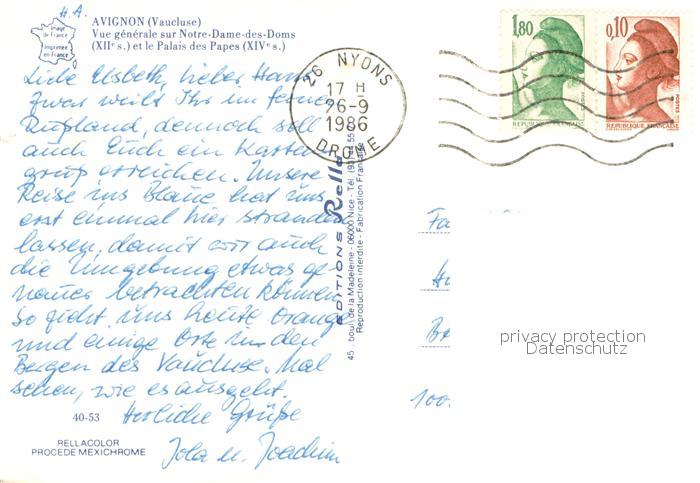 H.A.
AVIGNON (Vaucluse)
Vue générale sur Notre-Dame-des-Doms
(XIIe s.) et le Palais des Papes (XIVe s.)
Image
de France
Imprimée
en France
Liebe Elsbeth, lieber Hans
Zwar weilt Ihr im fernen
Rußland, dennoch soll
auch Euch ein Karten-
gruß erreichen. Unsere
Reise ins Blaue hat uns
erst einmal hier stranden
lassen, damit wir auch
die Umgebung etwas ge-
nauer betrachten können.
So zieht uns heute Orange
und einige Orte in den
Bergen des Vaucluse. Mal
sehen, wie es ausgeht.
Herzliche Grüße
Jola u. Joachim
40-53
RELLACOLOR
PROCEDE MEXICHROME
26 NYONS
17 H
26-9
1986
DROME
EDITIONS Rella
45, boul. de la Madeleine - 06000 Nice - Tél. (93) 44 55
Reproduction interdite - Fabrication Française
1,80
REPUBLIQUE FRANÇAISE
0,10
POSTES
REPUBLIQUE FRANÇAISE
privacy protection
Datenschutz
100